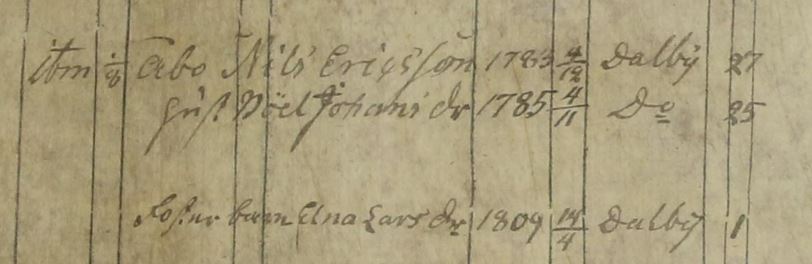 itm 1/8 Åbo Nils Ericsson 1783 4/12 Dalby 27
Hust Böel Johans dr 1785 4/11 Do 25
Foster barn Elna Lars dr 1809 14/4 Dalby 1